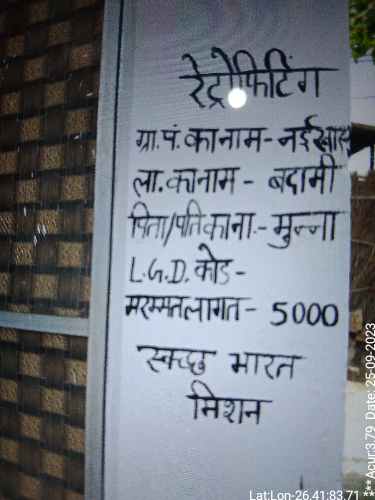 रेट्रोफिटिंग
ग्रा.पं. का नाम- नईखास
ला. का नाम - बदामी
पिता/पति का ना.- मुन्ना
L.G.D. कोड -
मरम्मत लागत- 5000
स्वच्छ भारत
मिशन
Lat:Lon-26.41:83.71
***Acur:3.79 Date: 25-09-2023